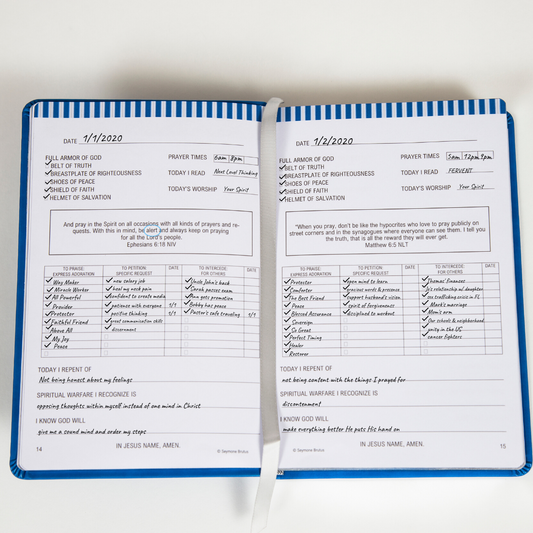 DATE 1/1/2020
FULL ARMOR OF GOD
BELT OF TRUTH
BREASTPLATE OF RIGHTEOUSNESS
SHOES OF PEACE
SHIELD OF FAITH
HELMET OF SALVATION
PRAYER TIMES 6am 8pm
TODAY I READ Next Level Thinking
TODAY'S WORSHIP Your Spirit
And pray in the Spirit on all occasions with all kinds of prayers and re-
quests. With this in mind, be alert and always keep on praying
for all the Lord's people.
Ephesians 6:18 NIV
TO PRAISE: EXPRESS ADORATION
Way Maker
Miracle Worker
All Powerful
Provider
Protector
Faithful Friend
Above All
My Joy
Peace
TO PETITION: SPECIFIC REQUEST DATE
new salary job
heal my neck pain
confident to create media
patience with everyone 1/1
positive thinking 1/1
great communication skills
discernment
TO INTERCEDE: FOR OTHERS DATE
Uncle John's back
Sarah passes exam
Ann gets promotion
Bobby has peace
Pastor's safe traveling 1/1
TODAY I REPENT OF
Not being honest about my feelings
SPIRITUAL WARFARE I RECOGNIZE IS
opposing thoughts within myself instead of one mind in Christ
I KNOW GOD WILL
give me a sound mind and order my steps
14
IN JESUS NAME, AMEN.
© Stephanie Brutus
DATE 1/2/2020
FULL ARMOR OF GOD
BELT OF TRUTH
BREASTPLATE OF RIGHTEOUSNESS
SHOES OF PEACE
SHIELD OF FAITH
HELMET OF SALVATION
PRAYER TIMES 5am 12pm 9pm
TODAY I READ FERVENT
TODAY'S WORSHIP Your Spirit
"When you pray, don't be like the hypocrites who love to pray publicly on
street corners and in the synagogues where everyone can see them. I tell you
the truth, that is all the reward they will ever get.
Matthew 6:5 NLT
TO PRAISE: EXPRESS ADORATION
Protector
Comforter
The Best Friend
Peace
Blessed Assurance
Sovereign
So Great
Perfect Timing
Healer
Restorer
TO PETITION: SPECIFIC REQUEST DATE
open mind to learn
gracious words & presence
support husband's vision
spirit of forgiveness
disciplined to workout
TO INTERCEDE: FOR OTHERS DATE
Thomas' finances
relationship w/ daughter
sex trafficking crisis in FL
Mark's marriage
Mom's arm
Our schools & neighborhood
unity in the US
cancer fighters
TODAY I REPENT OF
not being content with the things I prayed for
SPIRITUAL WARFARE I RECOGNIZE IS
discontentment
I KNOW GOD WILL
make everything better He puts His hand on
© Stephanie Brutus
IN JESUS NAME, AMEN.
15